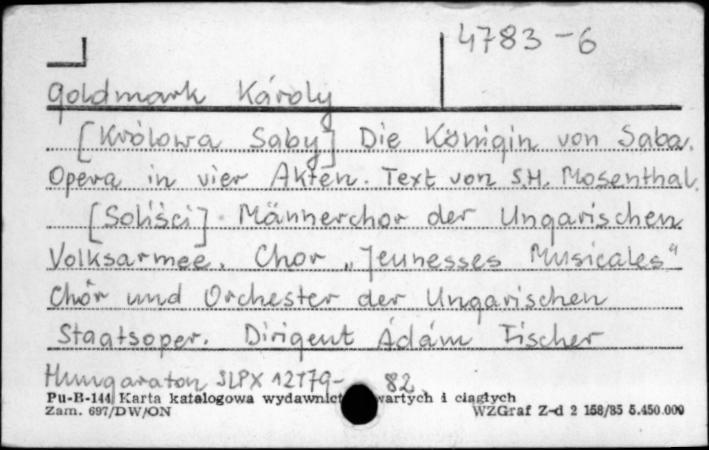 4783-6
Goldmark Károly
[Królowa Saby] Die Königin von Saba.
Opera in vier Akten. Text von S.H. Mosenthal.
[Soliści]. Männerchor der Ungarischen
Volksarmee. Chor „Jeunesses Musicales"
Chor und Orchester der Ungarischen
Staatsoper. Dirigent Ádám Fischer
Hungaraton SLPX 12179-82
Pu-B-144 Karta katalogowa wydawnict wartych i ciągłych
Zam. 697/DW/ON WZGraf Z-d 2 158/85 5.450.000